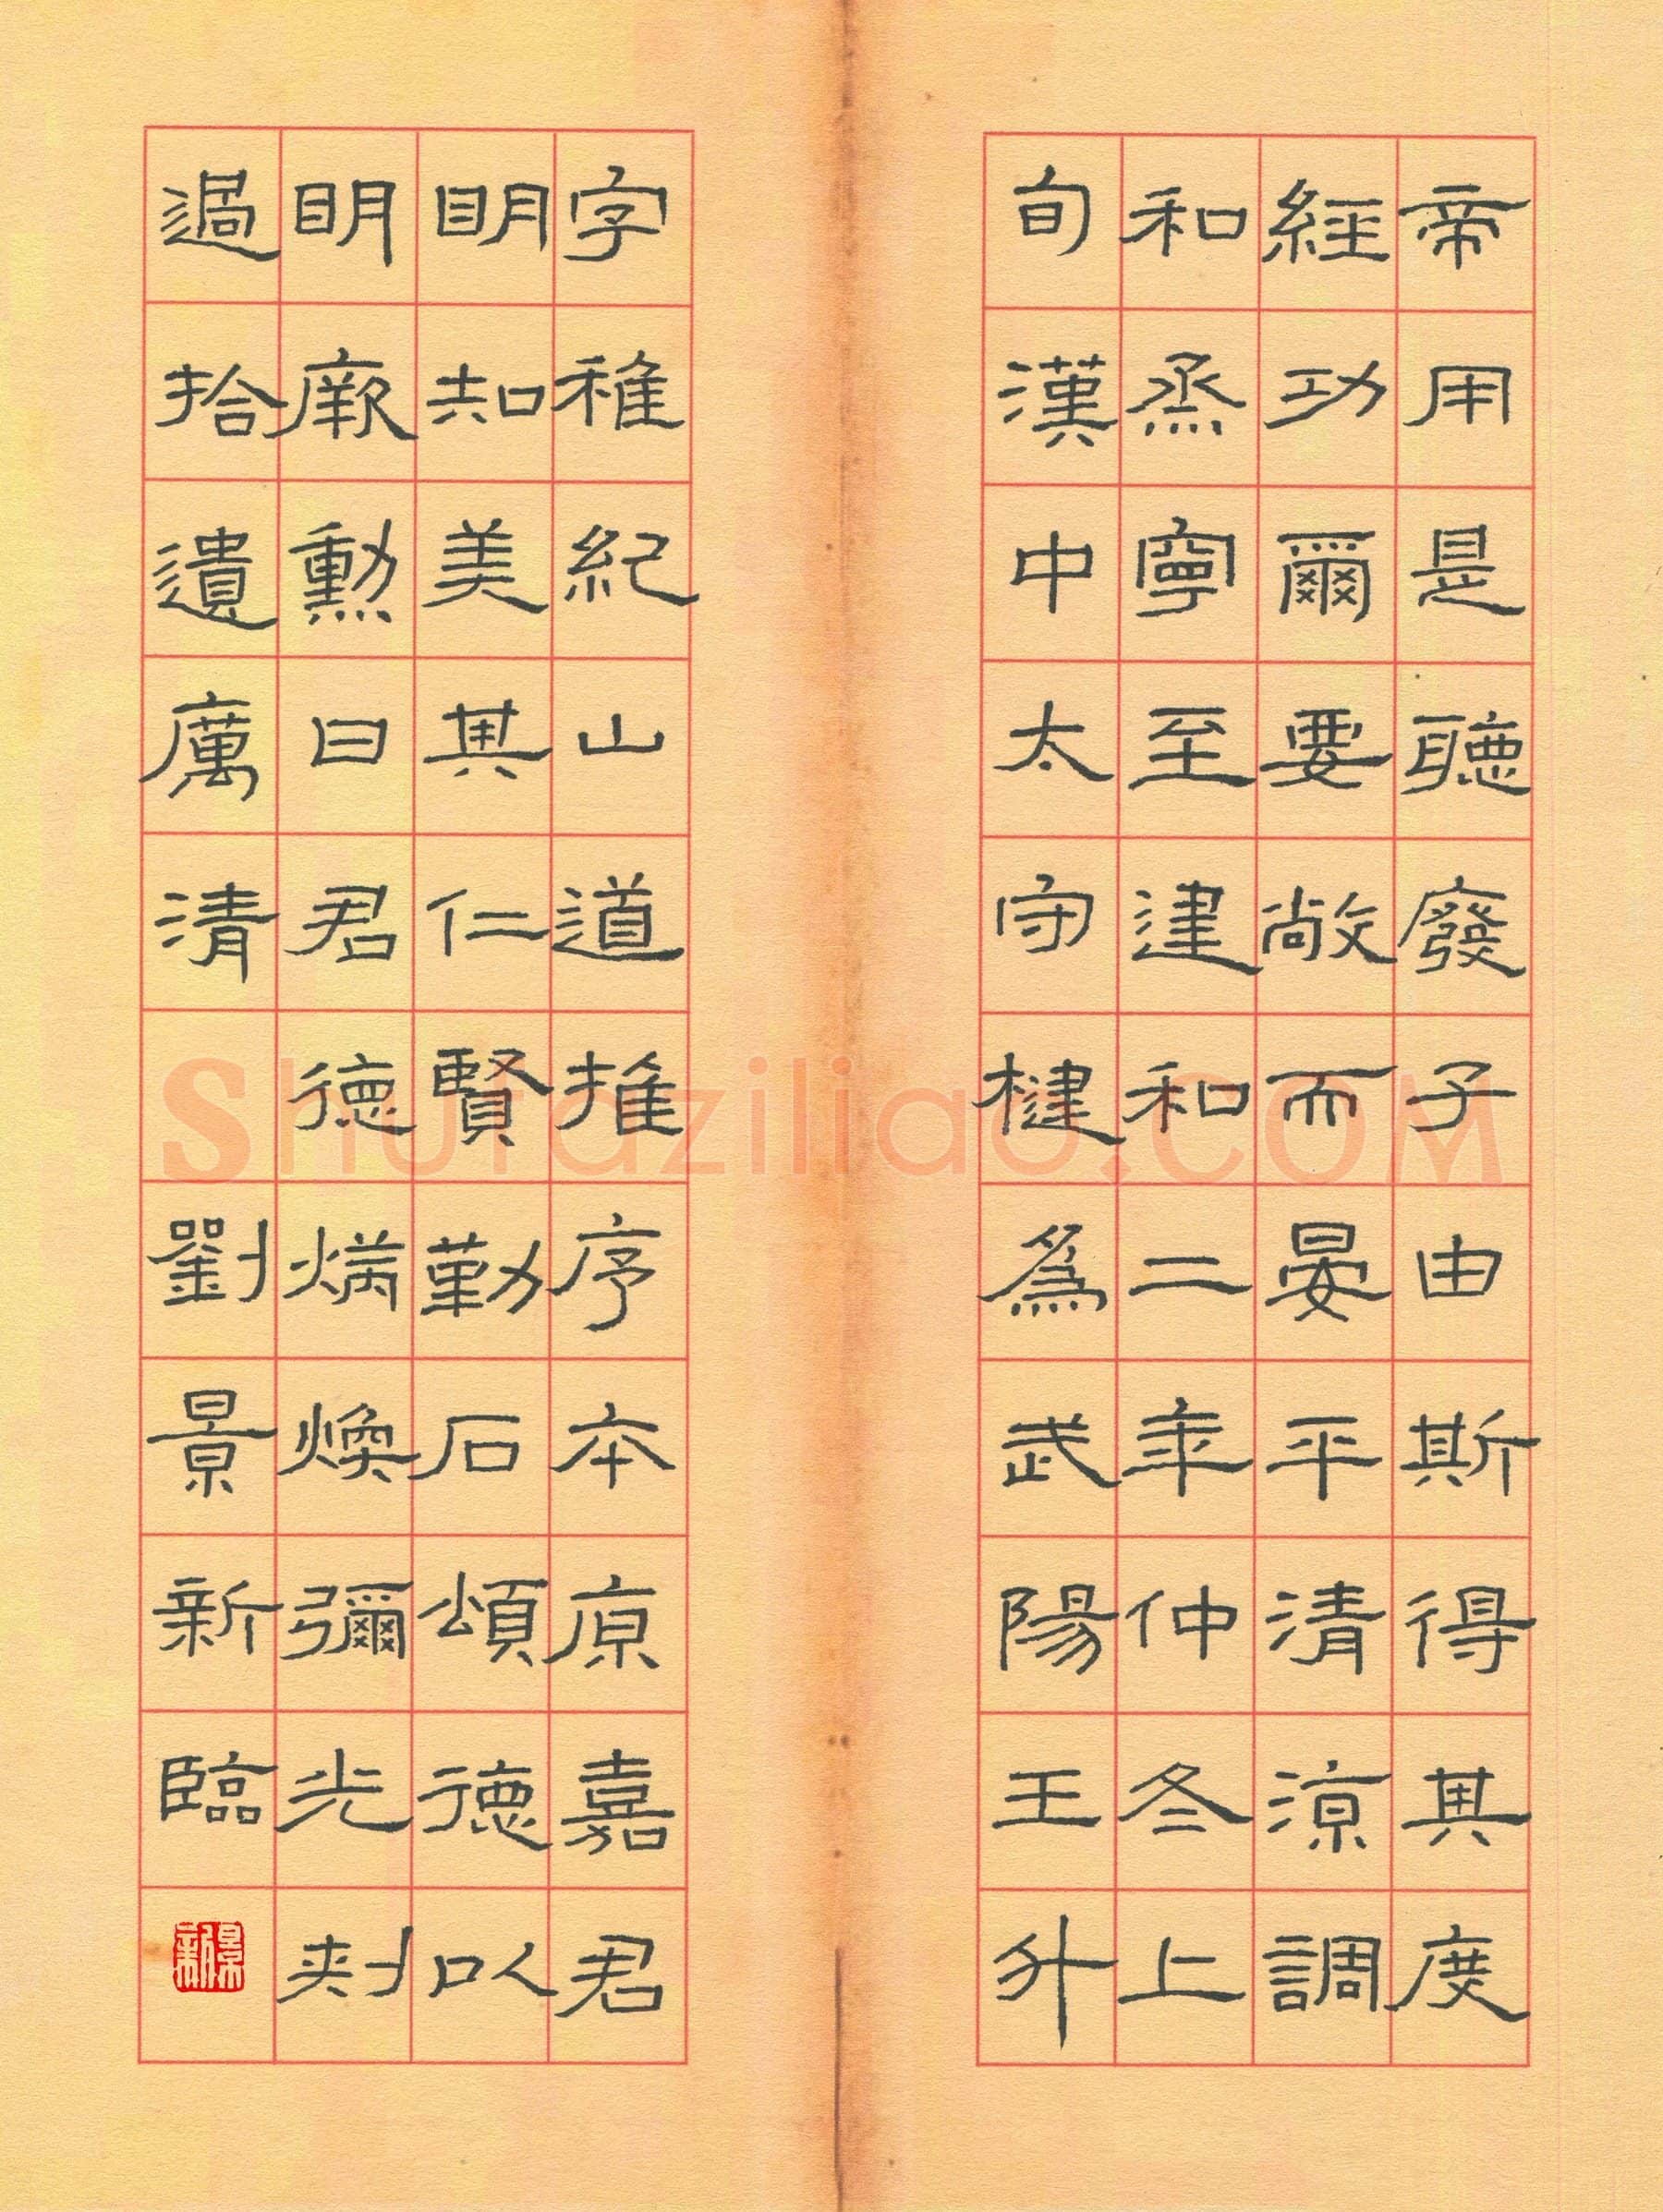 帝用是聽廢子由斯得其度
經功爾要敞而晏平清涼調
和烝寧至建和二年仲冬上
旬漢中太守楗為武陽王升
字稚紀山道推序本原嘉君
明知美其仁賢勤石頌德以
明厥勳曰君德明明煥彌光刺
過拾遺厲清 劉景新臨
景新
Shufaziliao.COM